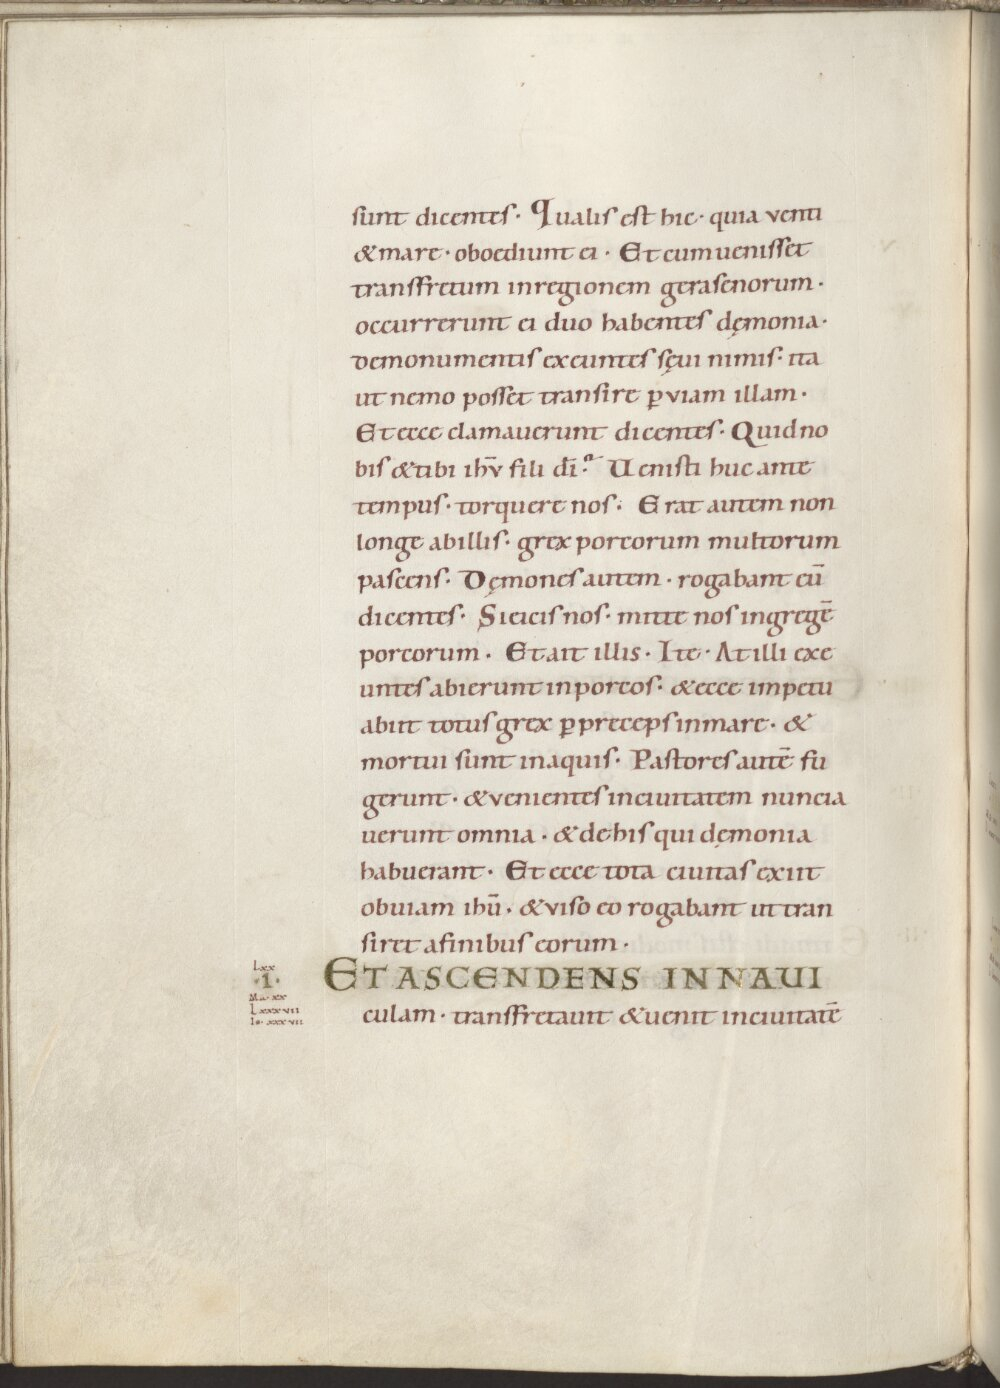 sunt dicentes · Qualis est hic · quia venti
& mare · oboediunt ei · Et cum uenisset
transfretum in regionem gerasenorum ·
occurrerunt ei duo habentes dęmonia ·
de monumentis exeuntes sęui nimis · ita
ut nemo posset transire ꝑ viam illam ·
Et ecce clamaverunt dicentes · Quid no
bis & tibi ihv̄ fili dī ? Uenisti huc ante
tempus · torquere nos · Erat autem non
longe ab illis · grex porcorum multorum
pascens · Dęmones autem · rogabant eū
dicentes · Si eicis nos · mitte nos in gregē
porcorum · Et ait illis · Ite · At illi exe
untes abierunt in porcos · & ecce impetu
abiit totus grex ꝑ preceps in mare · &
mortui sunt in aquis · Pastores autē fu
gerunt · & venientes in ciuitatem nuncia
uerunt omnia · & de his qui dęmonia
habuerant · Et ecce tota ciuitas exiit
obuiam ihū · & viso eo rogabant ut tran
siret a finibus eorum ·
Lxx
· I ·
Ma · xx
Lxxxvii
Io · xxxvii
ET ASCENDENS IN NAUI
culam · transfretauit & uenit in ciuitatē